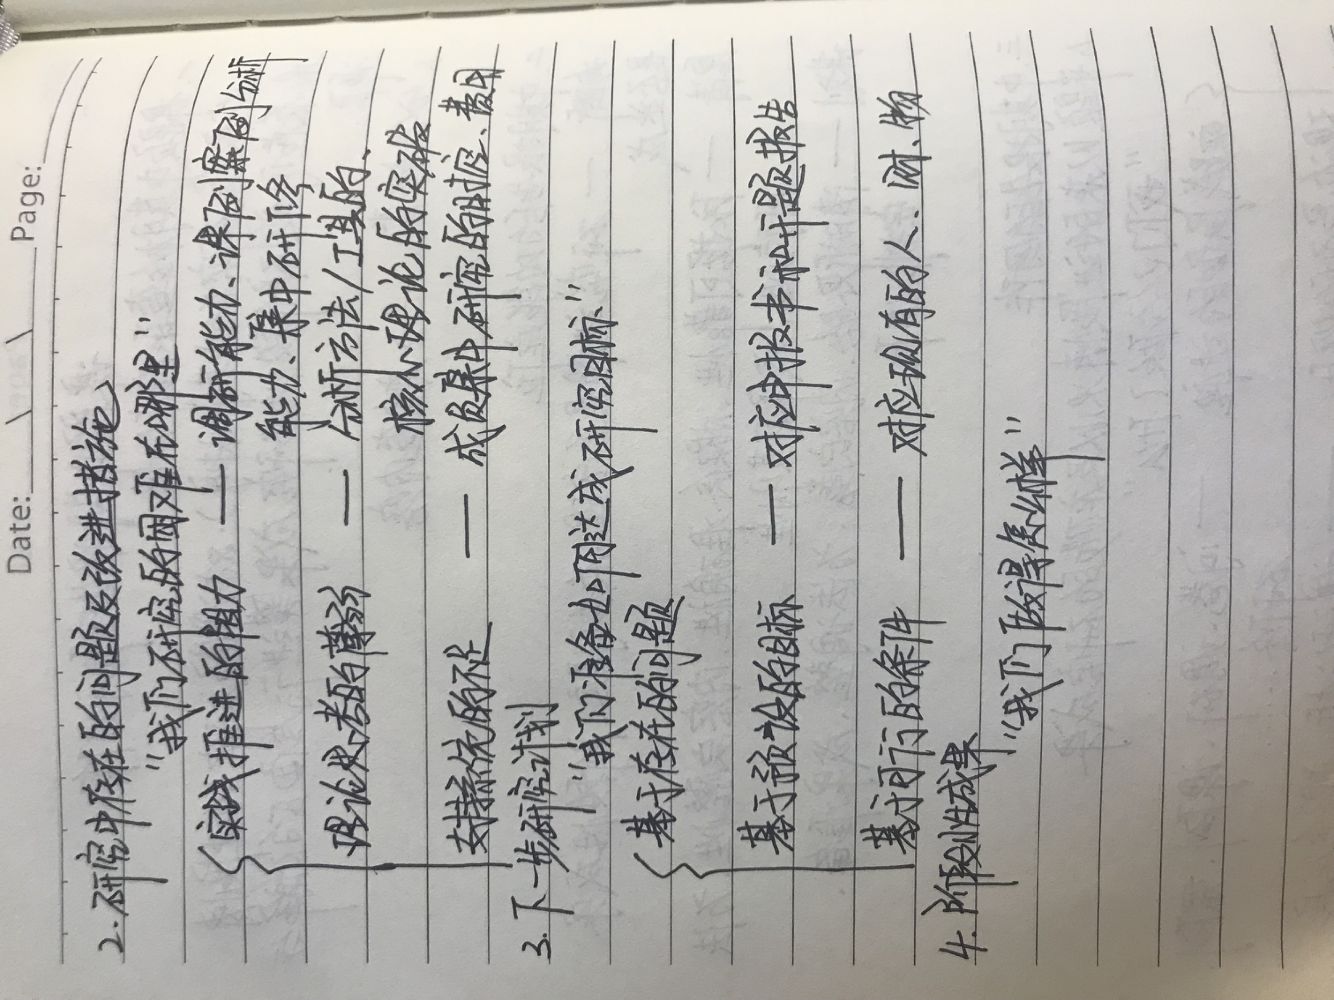 Date: Page:
2.研究中存在的问题及改进措施
"我们研究的困难在哪里"
实践推进的阻力 — 调研能力、课例案例分析
能力、集中研修
理论思考的薄弱 — 分析方法/工具的、
核心理论的突破
支持系统的不足 — 成员集中研究的时控、费用
3.下一步研究计划
"我们准备如何达成研究目标"
基于存在的问题
基于预设的目标 — 对应申报书和开题报告
基于可行的条件 — 对应现有的人、财、物
4.阶段性成果
"我们做得怎么样"